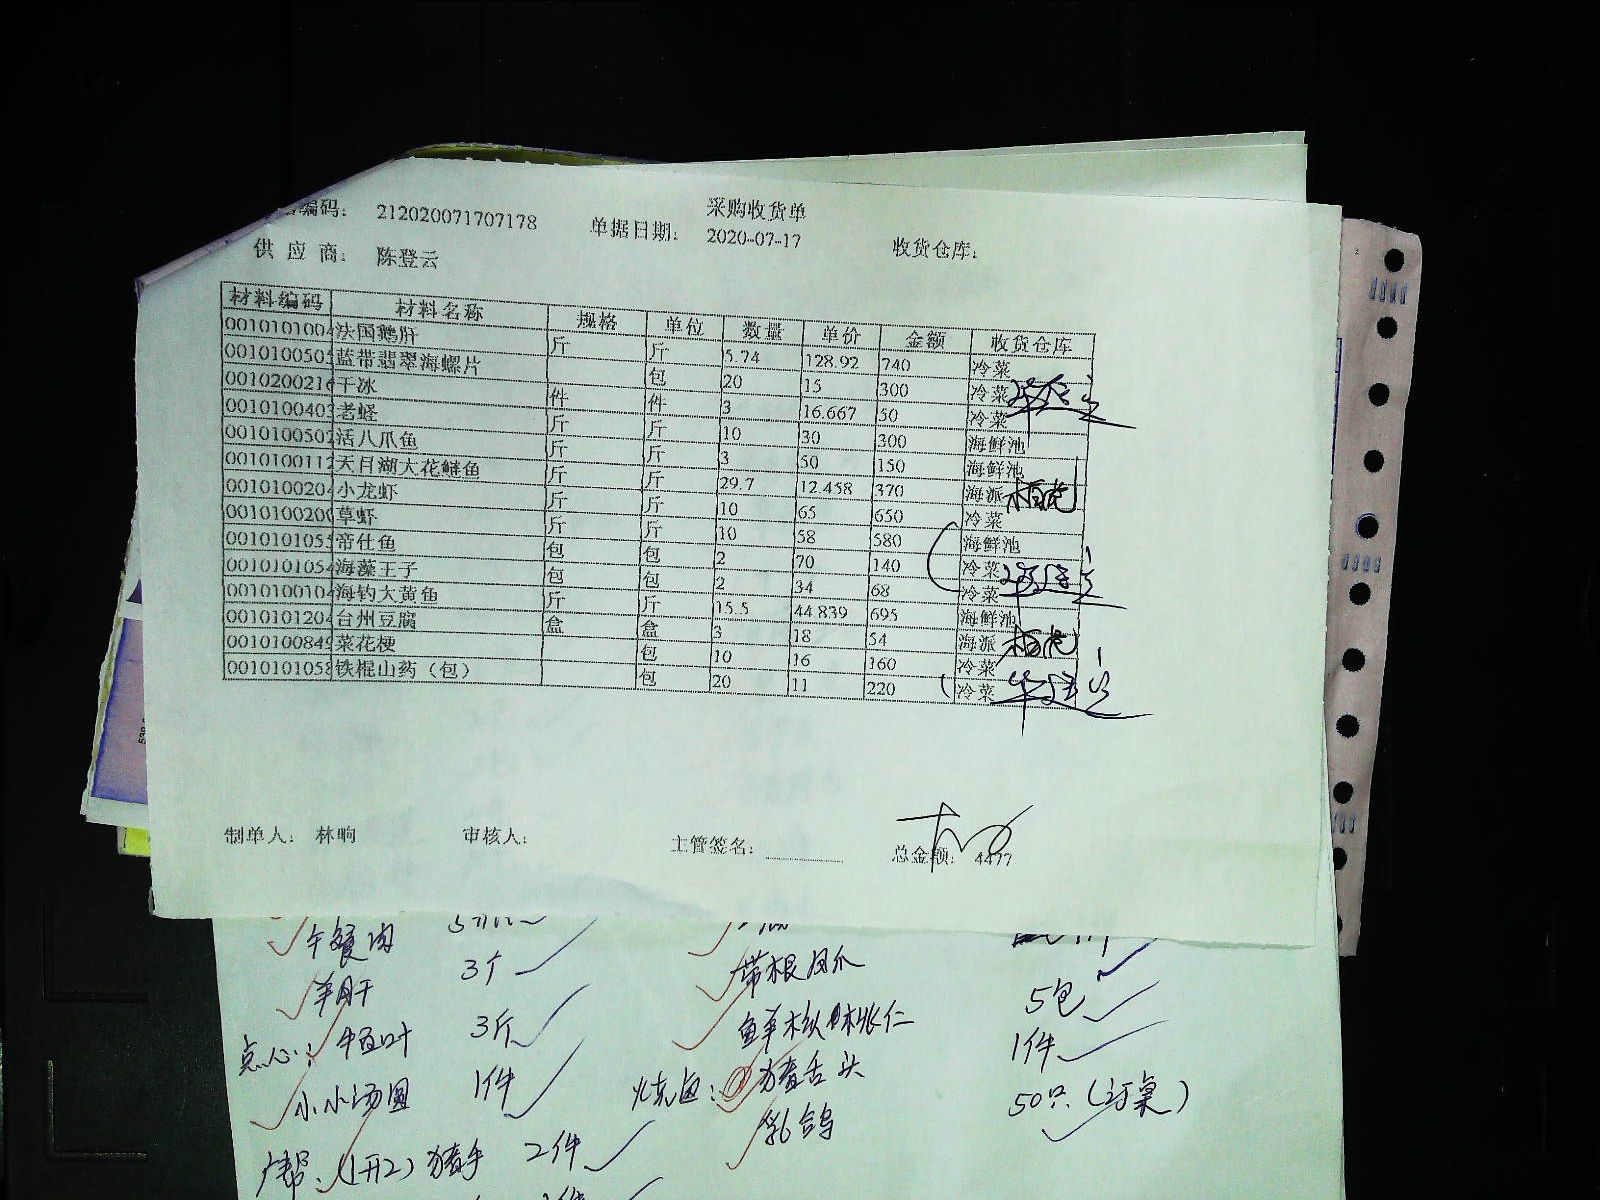 采购收货单
编码： 212020071707178 单据日期： 2020-07-17 收货仓库：
供应商： 陈登云
材料编码 材料名称 规格 单位 数量 单价 金额 收货仓库
001010100 法国鹅肝 斤 斤 5.74 128.92 740 冷菜
001010050 蓝带翡翠海螺片 包 20 15 300 冷菜
001020021 干冰 件 件 3 16.667 50 冷菜
001010040 老蛏 斤 斤 10 30 300 海鲜池
001010050 活八爪鱼 斤 斤 3 50 150 海鲜池
001010011 天目湖大花鲢鱼 斤 斤 29.7 12.458 370 海派
001010020 小龙虾 斤 斤 10 65 650 冷菜
001010020 草虾 斤 斤 10 58 580 海鲜池
001010105 帝仕鱼 包 包 2 70 140 冷菜
001010105 海藻王子 包 包 2 34 68 冷菜
001010010 海钓大黄鱼 斤 斤 15.5 44.839 695 海鲜池
001010120 台州豆腐 盒 盒 3 18 54 海派
001010084 菜花梗 包 10 16 160 冷菜
001010105 铁棍山药（包） 包 20 11 220 冷菜
制单人： 林晌 审核人： 主管签名： 总金额： 4477
午餐肉
羊肝 3斤 带根凤爪
点心： 3斤 5包
小小汤圆 1件 烧卤： 猪舌头 1件
乳鸽 50只（订桌）
广帮：（1开2）猪手 2件